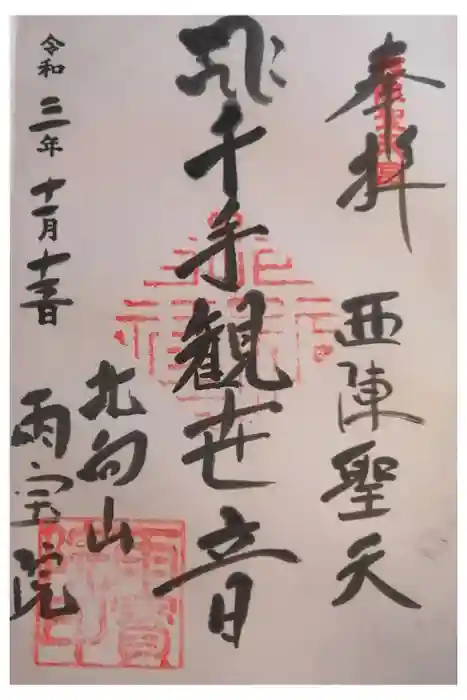 奉拝 西陣聖天
千手観世音
北向山
雨宝院
令和三年十一月十五日